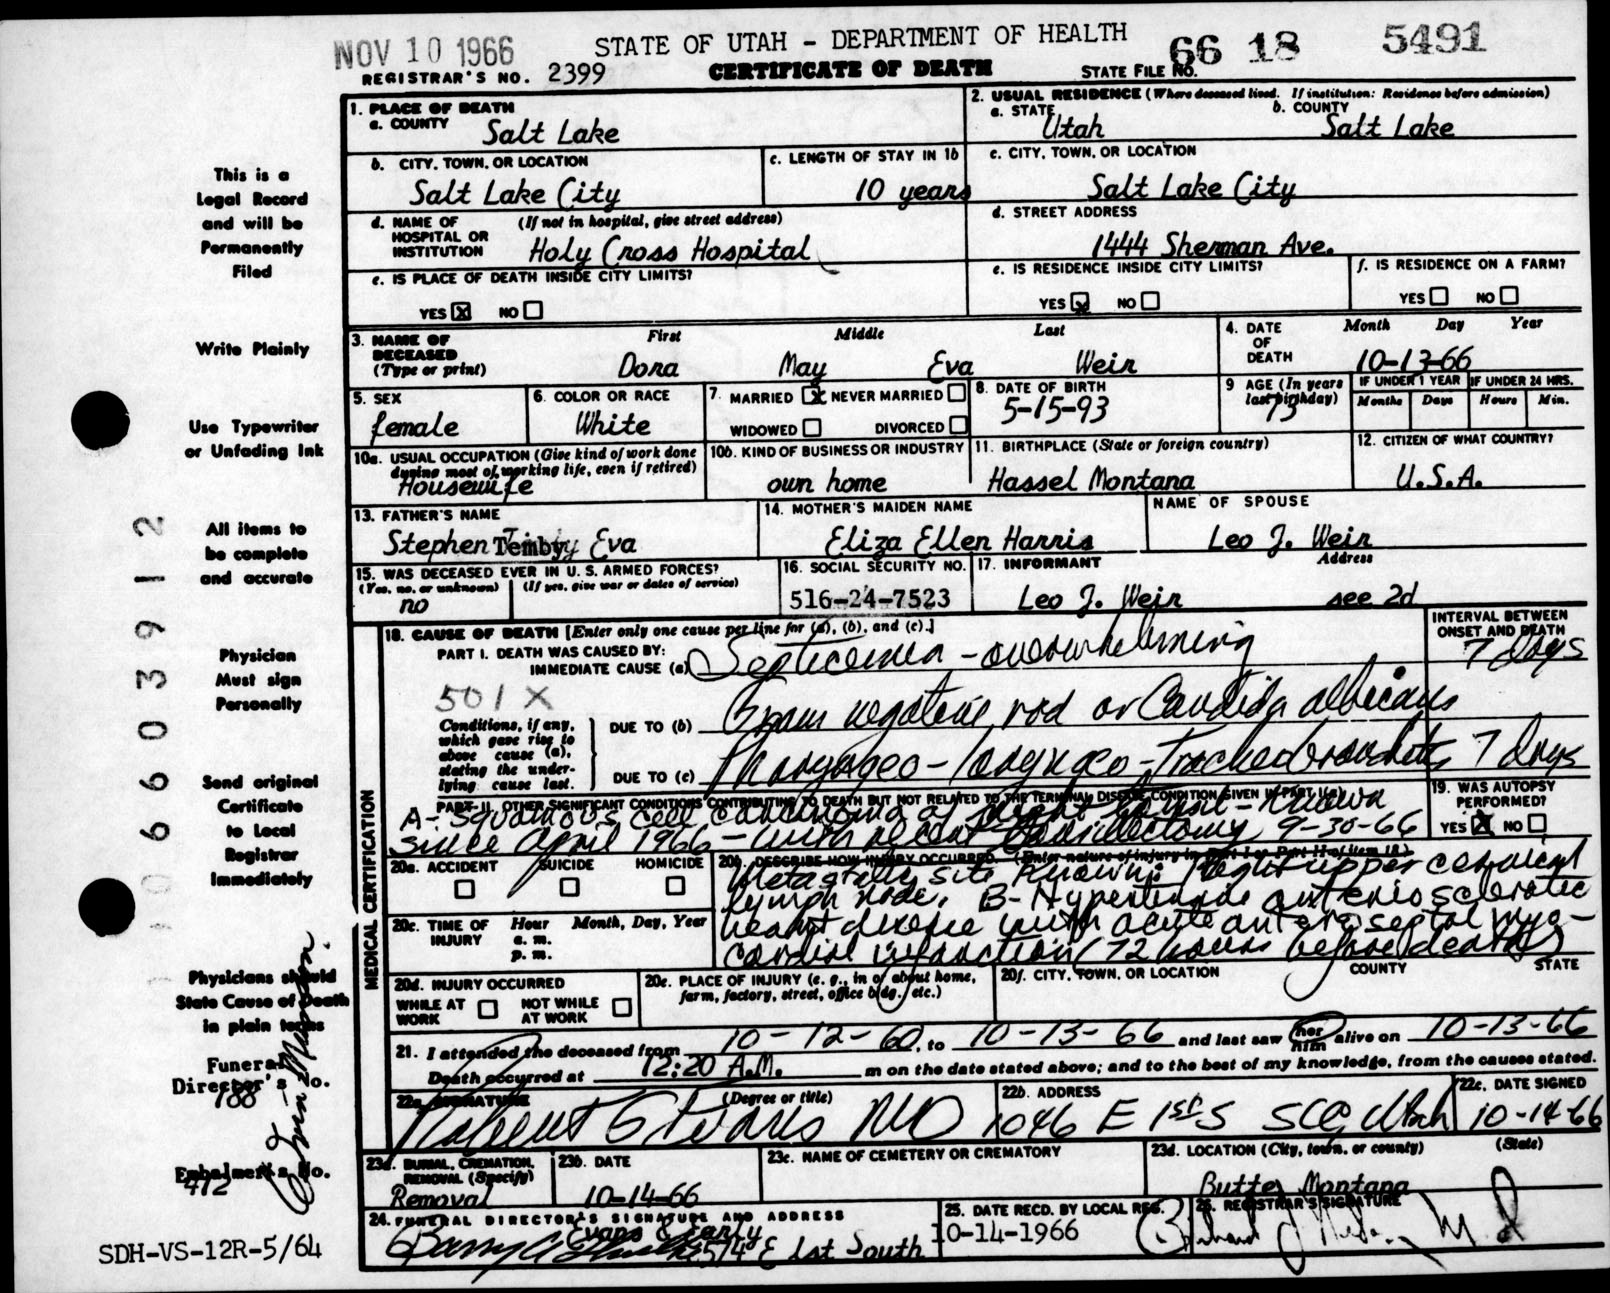 NOV 10 1966
STATE OF UTAH - DEPARTMENT OF HEALTH
66 18 5491
REGISTRAR'S NO. 2399
CERTIFICATE OF DEATH
STATE FILE NO.
1. PLACE OF DEATH
a. COUNTY Salt Lake
2. USUAL RESIDENCE (Where deceased lived. If institution: Residence before admission)
a. STATE Utah
b. COUNTY Salt Lake
b. CITY, TOWN, OR LOCATION Salt Lake City
c. LENGTH OF STAY IN 1b 10 years
c. CITY, TOWN, OR LOCATION Salt Lake City
d. NAME OF HOSPITAL OR INSTITUTION (If not in hospital, give street address) Holy Cross Hospital
d. STREET ADDRESS 1444 Sherman Ave.
e. IS PLACE OF DEATH INSIDE CITY LIMITS?
YES X NO
e. IS RESIDENCE INSIDE CITY LIMITS?
YES X NO
f. IS RESIDENCE ON A FARM?
YES NO
3. NAME OF DECEASED (Type or print)
First Middle Last
Dora May Eva Weir
4. DATE OF DEATH Month Day Year
10-13-66
5. SEX female
6. COLOR OR RACE White
7. MARRIED X NEVER MARRIED
WIDOWED DIVORCED
8. DATE OF BIRTH 5-15-93
9 AGE (In years last birthday) 73
IF UNDER 1 YEAR Months Days
IF UNDER 24 HRS. Hours Min.
10a. USUAL OCCUPATION (Give kind of work done during most of working life, even if retired)
Housewife
10b. KIND OF BUSINESS OR INDUSTRY
own home
11. BIRTHPLACE (State or foreign country)
Hassel Montana
12. CITIZEN OF WHAT COUNTRY?
U.S.A.
13. FATHER'S NAME
Stephen Temby Eva
14. MOTHER'S MAIDEN NAME
Eliza Ellen Harris
NAME OF SPOUSE
Leo J. Weir
15. WAS DECEASED EVER IN U. S. ARMED FORCES?
(Yes, no, or unknown) (If yes, give war or dates of service)
no
16. SOCIAL SECURITY NO.
516-24-7523
17. INFORMANT Address
Leo J. Weir see 2d
18. CAUSE OF DEATH [Enter only one cause per line for (a), (b), and (c).]
INTERVAL BETWEEN ONSET AND DEATH
PART I. DEATH WAS CAUSED BY:
IMMEDIATE CAUSE (a) Septicemia - overwhelming 7 days
501 X
Conditions, if any, which gave rise to above cause (a), stating the underlying cause last.
DUE TO (b) Gram negative rod or Candida albicans
DUE TO (c) Pharyngeo-laryngeo-Tracheobronchitis 7 days
PART II. OTHER SIGNIFICANT CONDITIONS CONTRIBUTING TO DEATH BUT NOT RELATED TO THE TERMINAL DISEASE CONDITION GIVEN IN PART I(a)
A- Squamous cell carcinoma of right tonsil - Known
since April 1966 - with recent tonsillectomy 9-30-66
19. WAS AUTOPSY PERFORMED?
YES X NO
20a. ACCIDENT SUICIDE HOMICIDE
20b. DESCRIBE HOW INJURY OCCURRED. (Enter nature of injury in Part I or Part II of item 18.)
Metastatic site Known: Right upper cervical
lymph node. B- Hypertensive arteriosclerotic
heart disease with acute anteroseptal myo-
cardial infarction (72 hours before death)
20c. TIME OF INJURY Hour Month, Day, Year
a. m.
p. m.
20d. INJURY OCCURRED
WHILE AT WORK NOT WHILE AT WORK
20e. PLACE OF INJURY (e. g., in or about home, farm, factory, street, office bldg., etc.)
20f. CITY, TOWN, OR LOCATION COUNTY STATE
21. I attended the deceased from 10-12-60, to 10-13-66 and last saw her him alive on 10-13-66
Death occurred at 12:20 A.M. m on the date stated above; and to the best of my knowledge, from the causes stated.
22a. SIGNATURE (Degree or title)
Robert G Evans MD
22b. ADDRESS
1046 E 1st S SLC Utah
22c. DATE SIGNED
10-14-66
23a. BURIAL, CREMATION, REMOVAL (Specify)
Removal
23b. DATE
10-14-66
23c. NAME OF CEMETERY OR CREMATORY
23d. LOCATION (City, town, or county) (State)
Butte, Montana
24. FUNERAL DIRECTOR'S SIGNATURE AND ADDRESS
Evans & Early
574 E 1st South
25. DATE RECD. BY LOCAL REG.
10-14-1966
26. REGISTRAR'S SIGNATURE
M D
This is a
Legal Record
and will be
Permanently
Filed
Write Plainly
Use Typewriter
or Unfading Ink
All items to
be complete
and accurate
Physician
Must sign
Personally
Send original
Certificate
to Local
Registrar
Immediately
Physicians should
State Cause of Death
in plain terms
Funeral
Director's No.
188
Embalmer's No.
412
SDH-VS-12R-5/64
MEDICAL CERTIFICATION
06603912